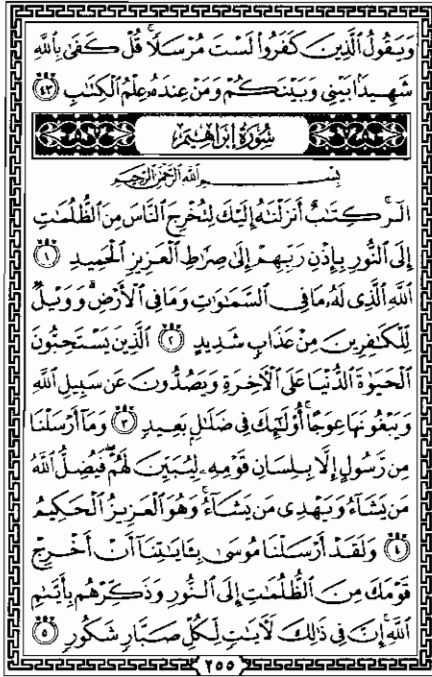 وَيَقُولُ ٱلَّذِينَ كَفَرُوا۟ لَسْتَ مُرْسَلًا ۚ قُلْ كَفَىٰ بِٱللَّهِ
شَهِيدًۢا بَيْنِى وَبَيْنَكُمْ وَمَنْ عِندَهُۥ عِلْمُ ٱلْكِتَٰبِ ٤٣
سُورَةُ إِبْرَاهِيمَ
بِسْمِ ٱللَّهِ ٱلرَّحْمَٰنِ ٱلرَّحِيمِ
الٓر ۚ كِتَٰبٌ أَنزَلْنَٰهُ إِلَيْكَ لِتُخْرِجَ ٱلنَّاسَ مِنَ ٱلظُّلُمَٰتِ
إِلَى ٱلنُّورِ بِإِذْنِ رَبِّهِمْ إِلَىٰ صِرَٰطِ ٱلْعَزِيزِ ٱلْحَمِيدِ ١
ٱللَّهِ ٱلَّذِى لَهُۥ مَا فِى ٱلسَّمَٰوَٰتِ وَمَا فِى ٱلْأَرْضِ ۗ وَوَيْلٌ
لِّلْكَٰفِرِينَ مِنْ عَذَابٍ شَدِيدٍ ٢ ٱلَّذِينَ يَسْتَحِبُّونَ
ٱلْحَيَوٰةَ ٱلدُّنْيَا عَلَى ٱلْءَاخِرَةِ وَيَصُدُّونَ عَن سَبِيلِ ٱللَّهِ
وَيَبْغُونَهَا عِوَجًا ۚ أُو۟لَٰٓئِكَ فِى ضَلَٰلٍۭ بَعِيدٍ ٣ وَمَآ أَرْسَلْنَا
مِن رَّسُولٍ إِلَّا بِلِسَانِ قَوْمِهِۦ لِيُبَيِّنَ لَهُمْ ۖ فَيُضِلُّ ٱللَّهُ
مَن يَشَآءُ وَيَهْدِى مَن يَشَآءُ ۚ وَهُوَ ٱلْعَزِيزُ ٱلْحَكِيمُ
٤ وَلَقَدْ أَرْسَلْنَا مُوسَىٰ بِـَٔايَٰتِنَآ أَنْ أَخْرِجْ
قَوْمَكَ مِنَ ٱلظُّلُمَٰتِ إِلَى ٱلنُّورِ وَذَكِّرْهُم بِأَيَّىٰمِ
ٱللَّهِ ۚ إِنَّ فِى ذَٰلِكَ لَءَايَٰتٍ لِّكُلِّ صَبَّارٍ شَكُورٍ ٥
٢٥٥